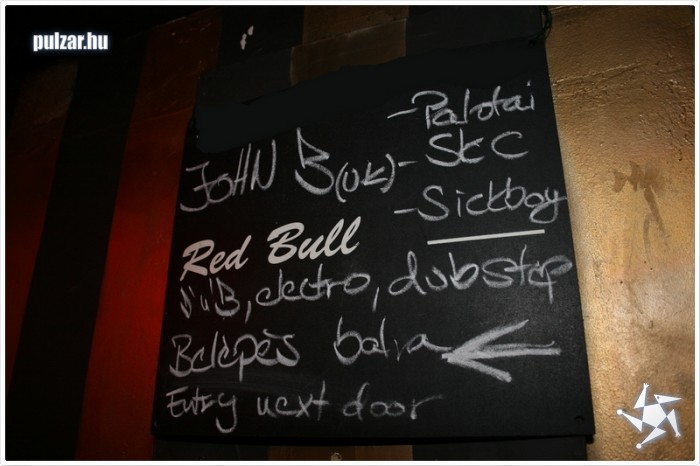 pulzar.hu
- Palotai
JOHN B (UK) - SKC
- Sickboy
Red Bull
D'n'B, electro, dubstep
Belépés balra
Entry next door